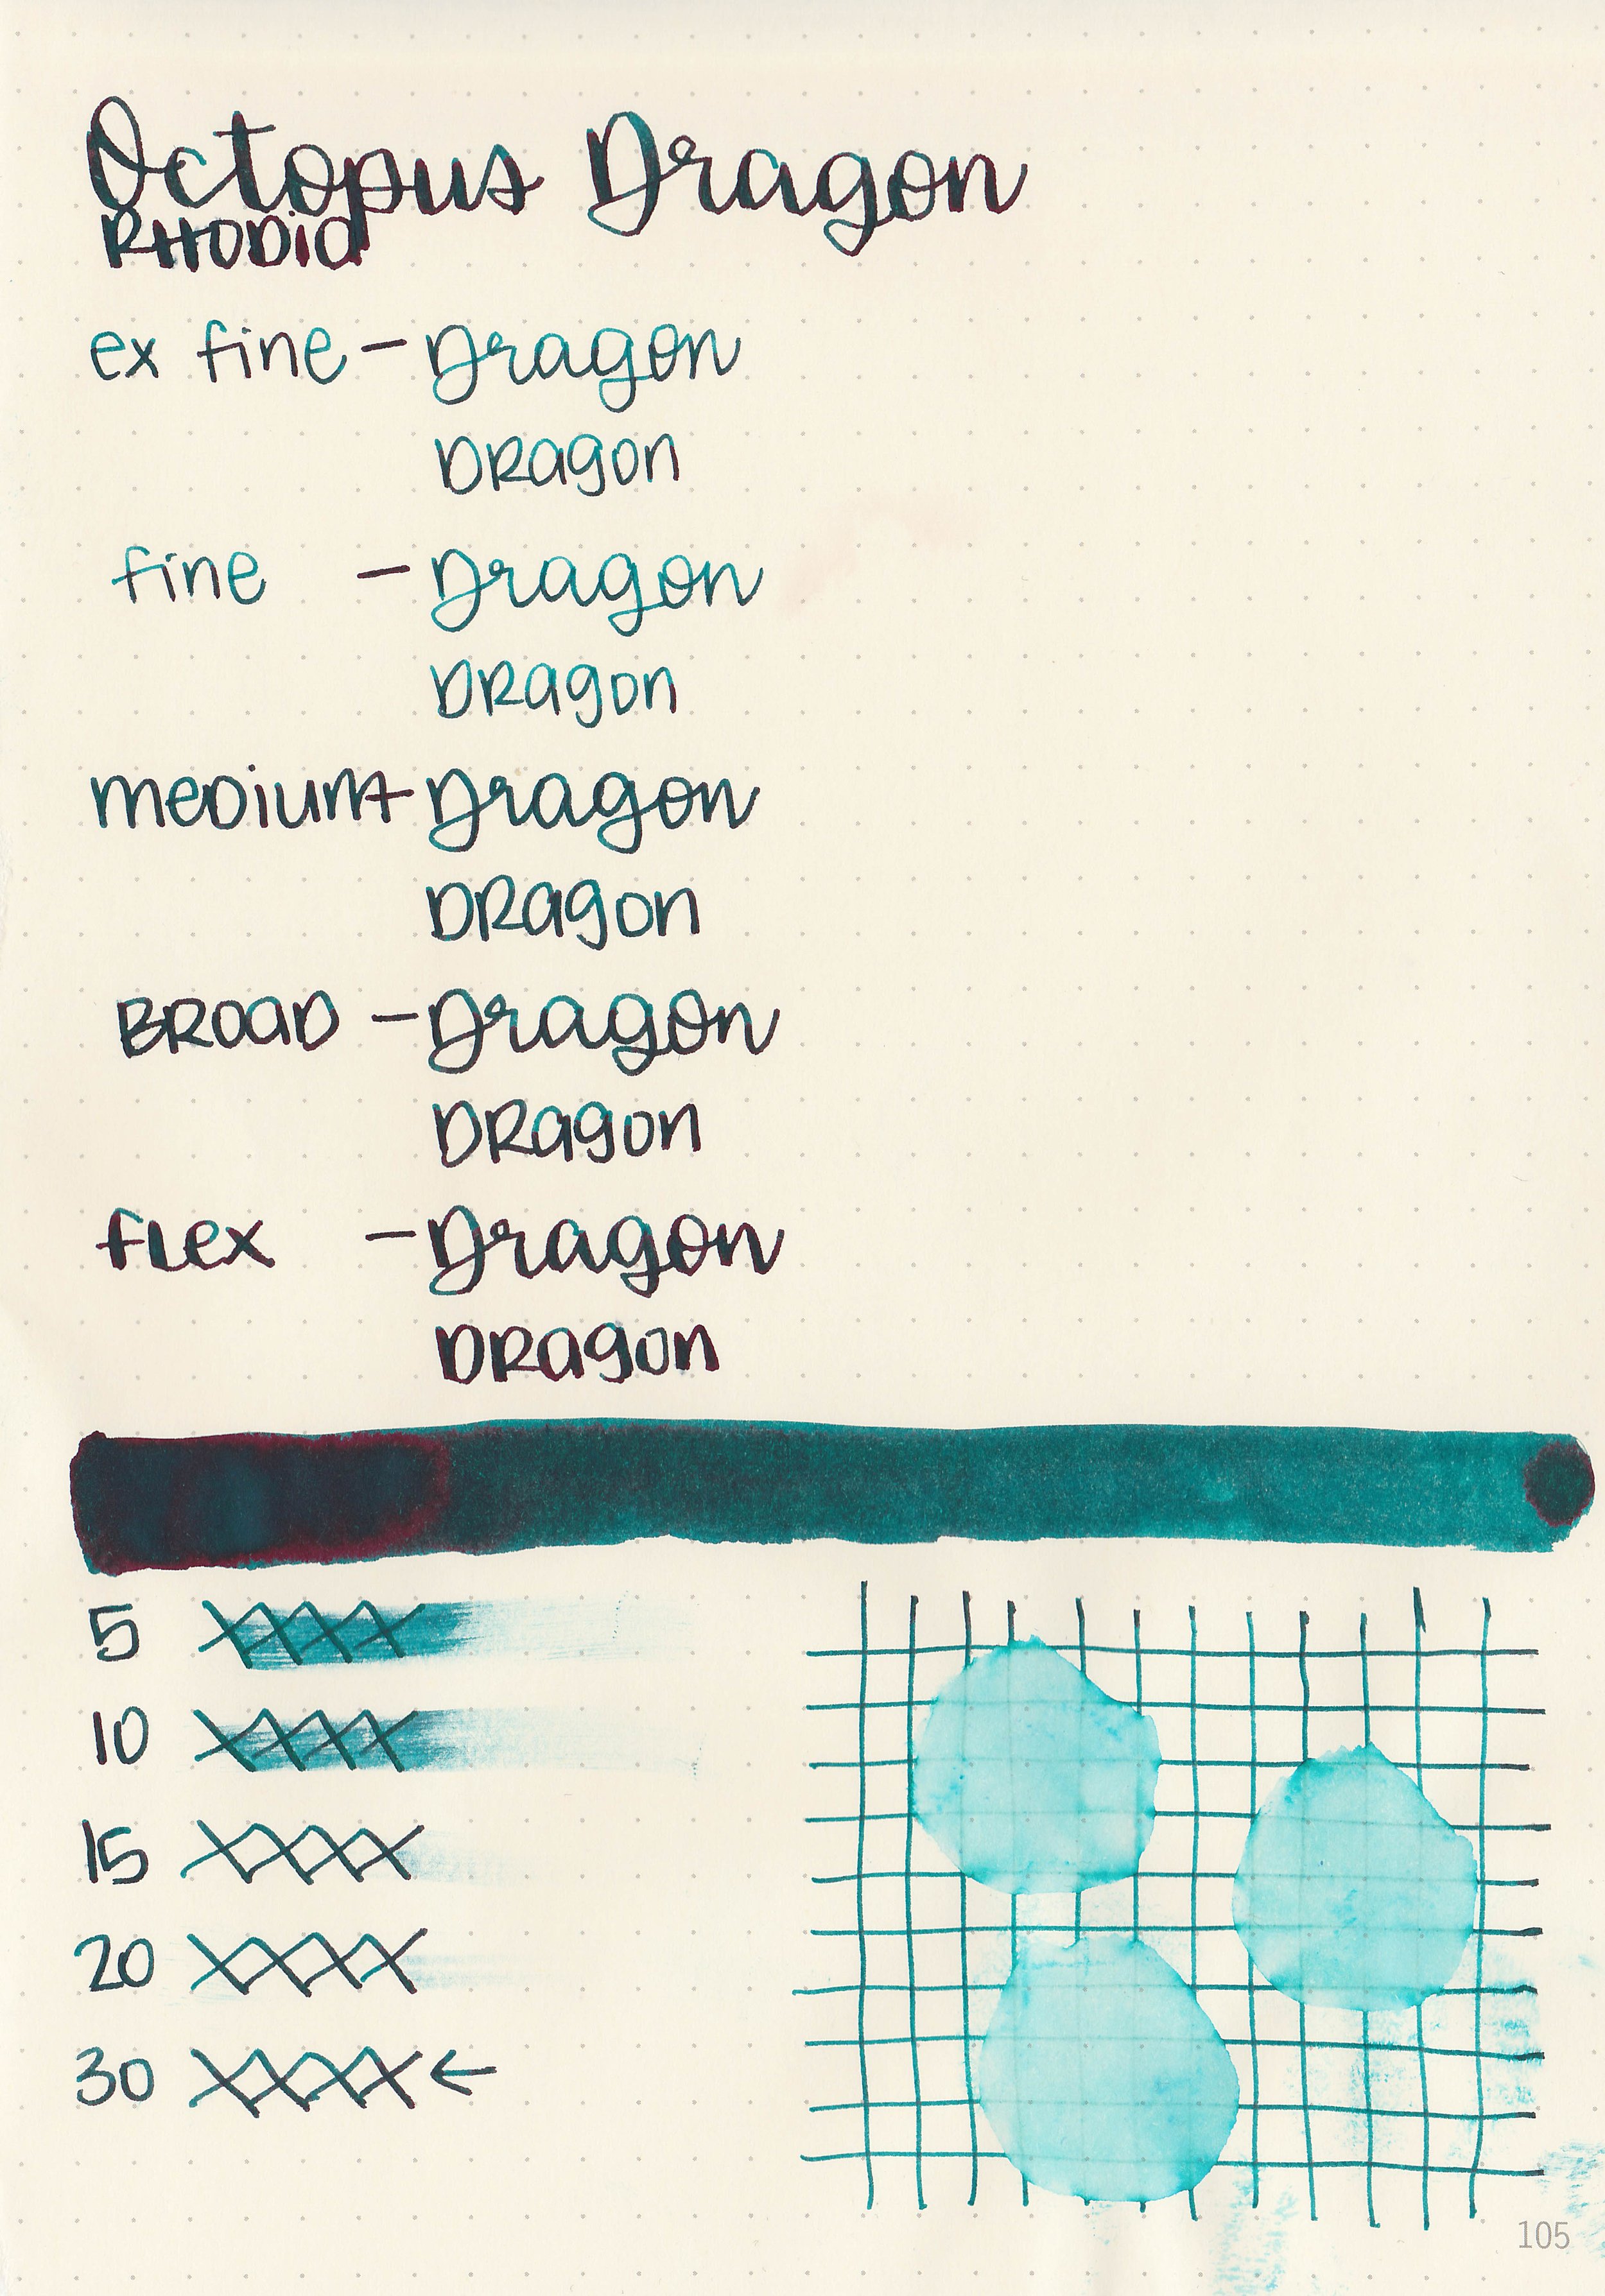 Octopus Dragon
RHODIA
ex fine - Dragon
DRagon
fine - Dragon
DRagon
meDium - Dragon
DRagon
BROAD - Dragon
DRagon
flex - Dragon
DRagon
5 XXXX
10 XXXX
15 XXXX
20 XXXX
30 XXXX ←
105